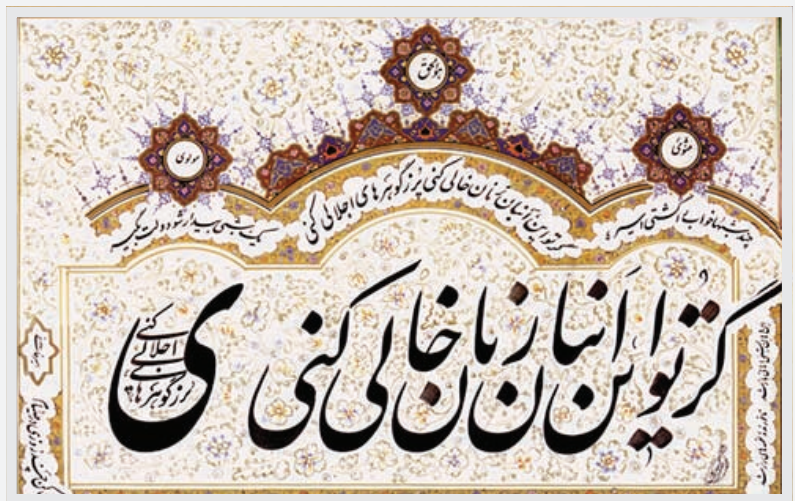 هو الحق
مثنوی
مولوی
چند شبها خواب را گشتی اسیر
گر تو این انبان ز نان خالی کنی پر ز گوهرهای اجلالی کنی
یک شبی بیدار شو دولت بگیر
گر تو این انبان ز نان خالی کنی
پر ز گوهرهای اجلالی کنی